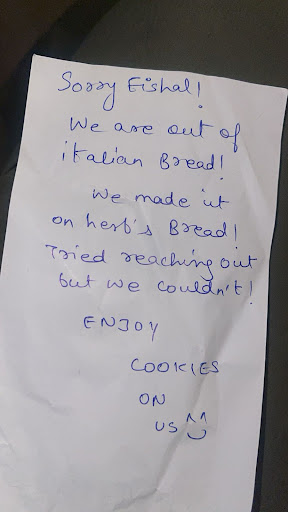 Sorry Eishal!
We are out of
italian Bread!
We made it
on herb's Bread!
Tried reaching out
but we couldn't!
ENJOY
COOKIES
ON
US